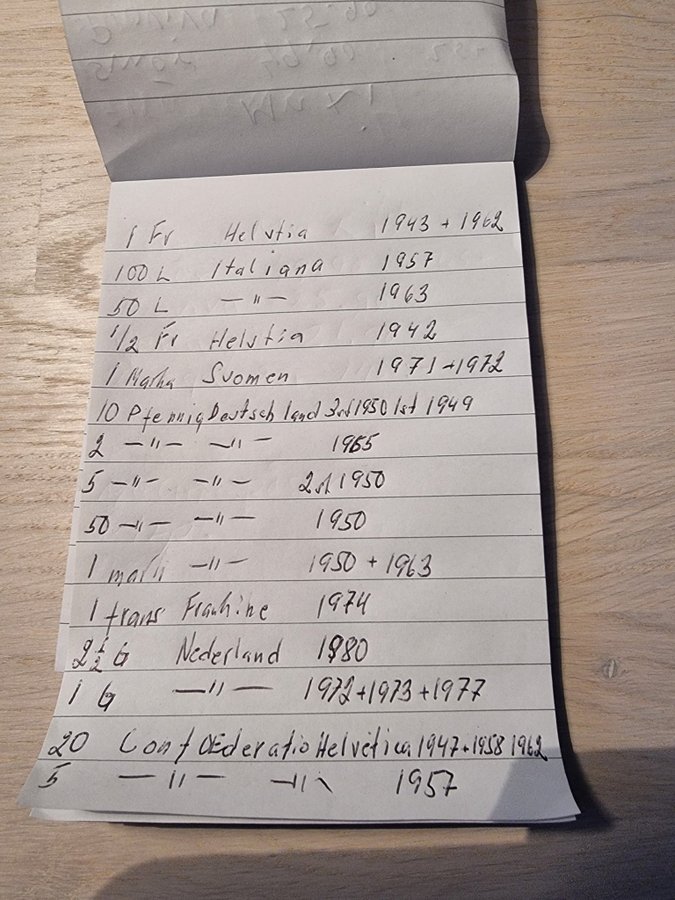 1 Fr Helvtia 1943 + 1962
100 L Italiana 1957
50 L —"— 1963
1/2 Fr Helvtia 1942
1 Marka Suomen 1971 + 1972
10 Pfennig Deutschland 3st 1950 1st 1949
2 —"— —"— 1965
5 —"— —"— 2st 1950
50 —"— —"— 1950
1 mark —"— 1950 + 1963
1 frans 1974
2 1/2 G Nederland 1980
1 G —"— 1972+1973+1977
20 ConfOEderatio Helvetica 1947+1958 1962
5 —"— —"— 1957